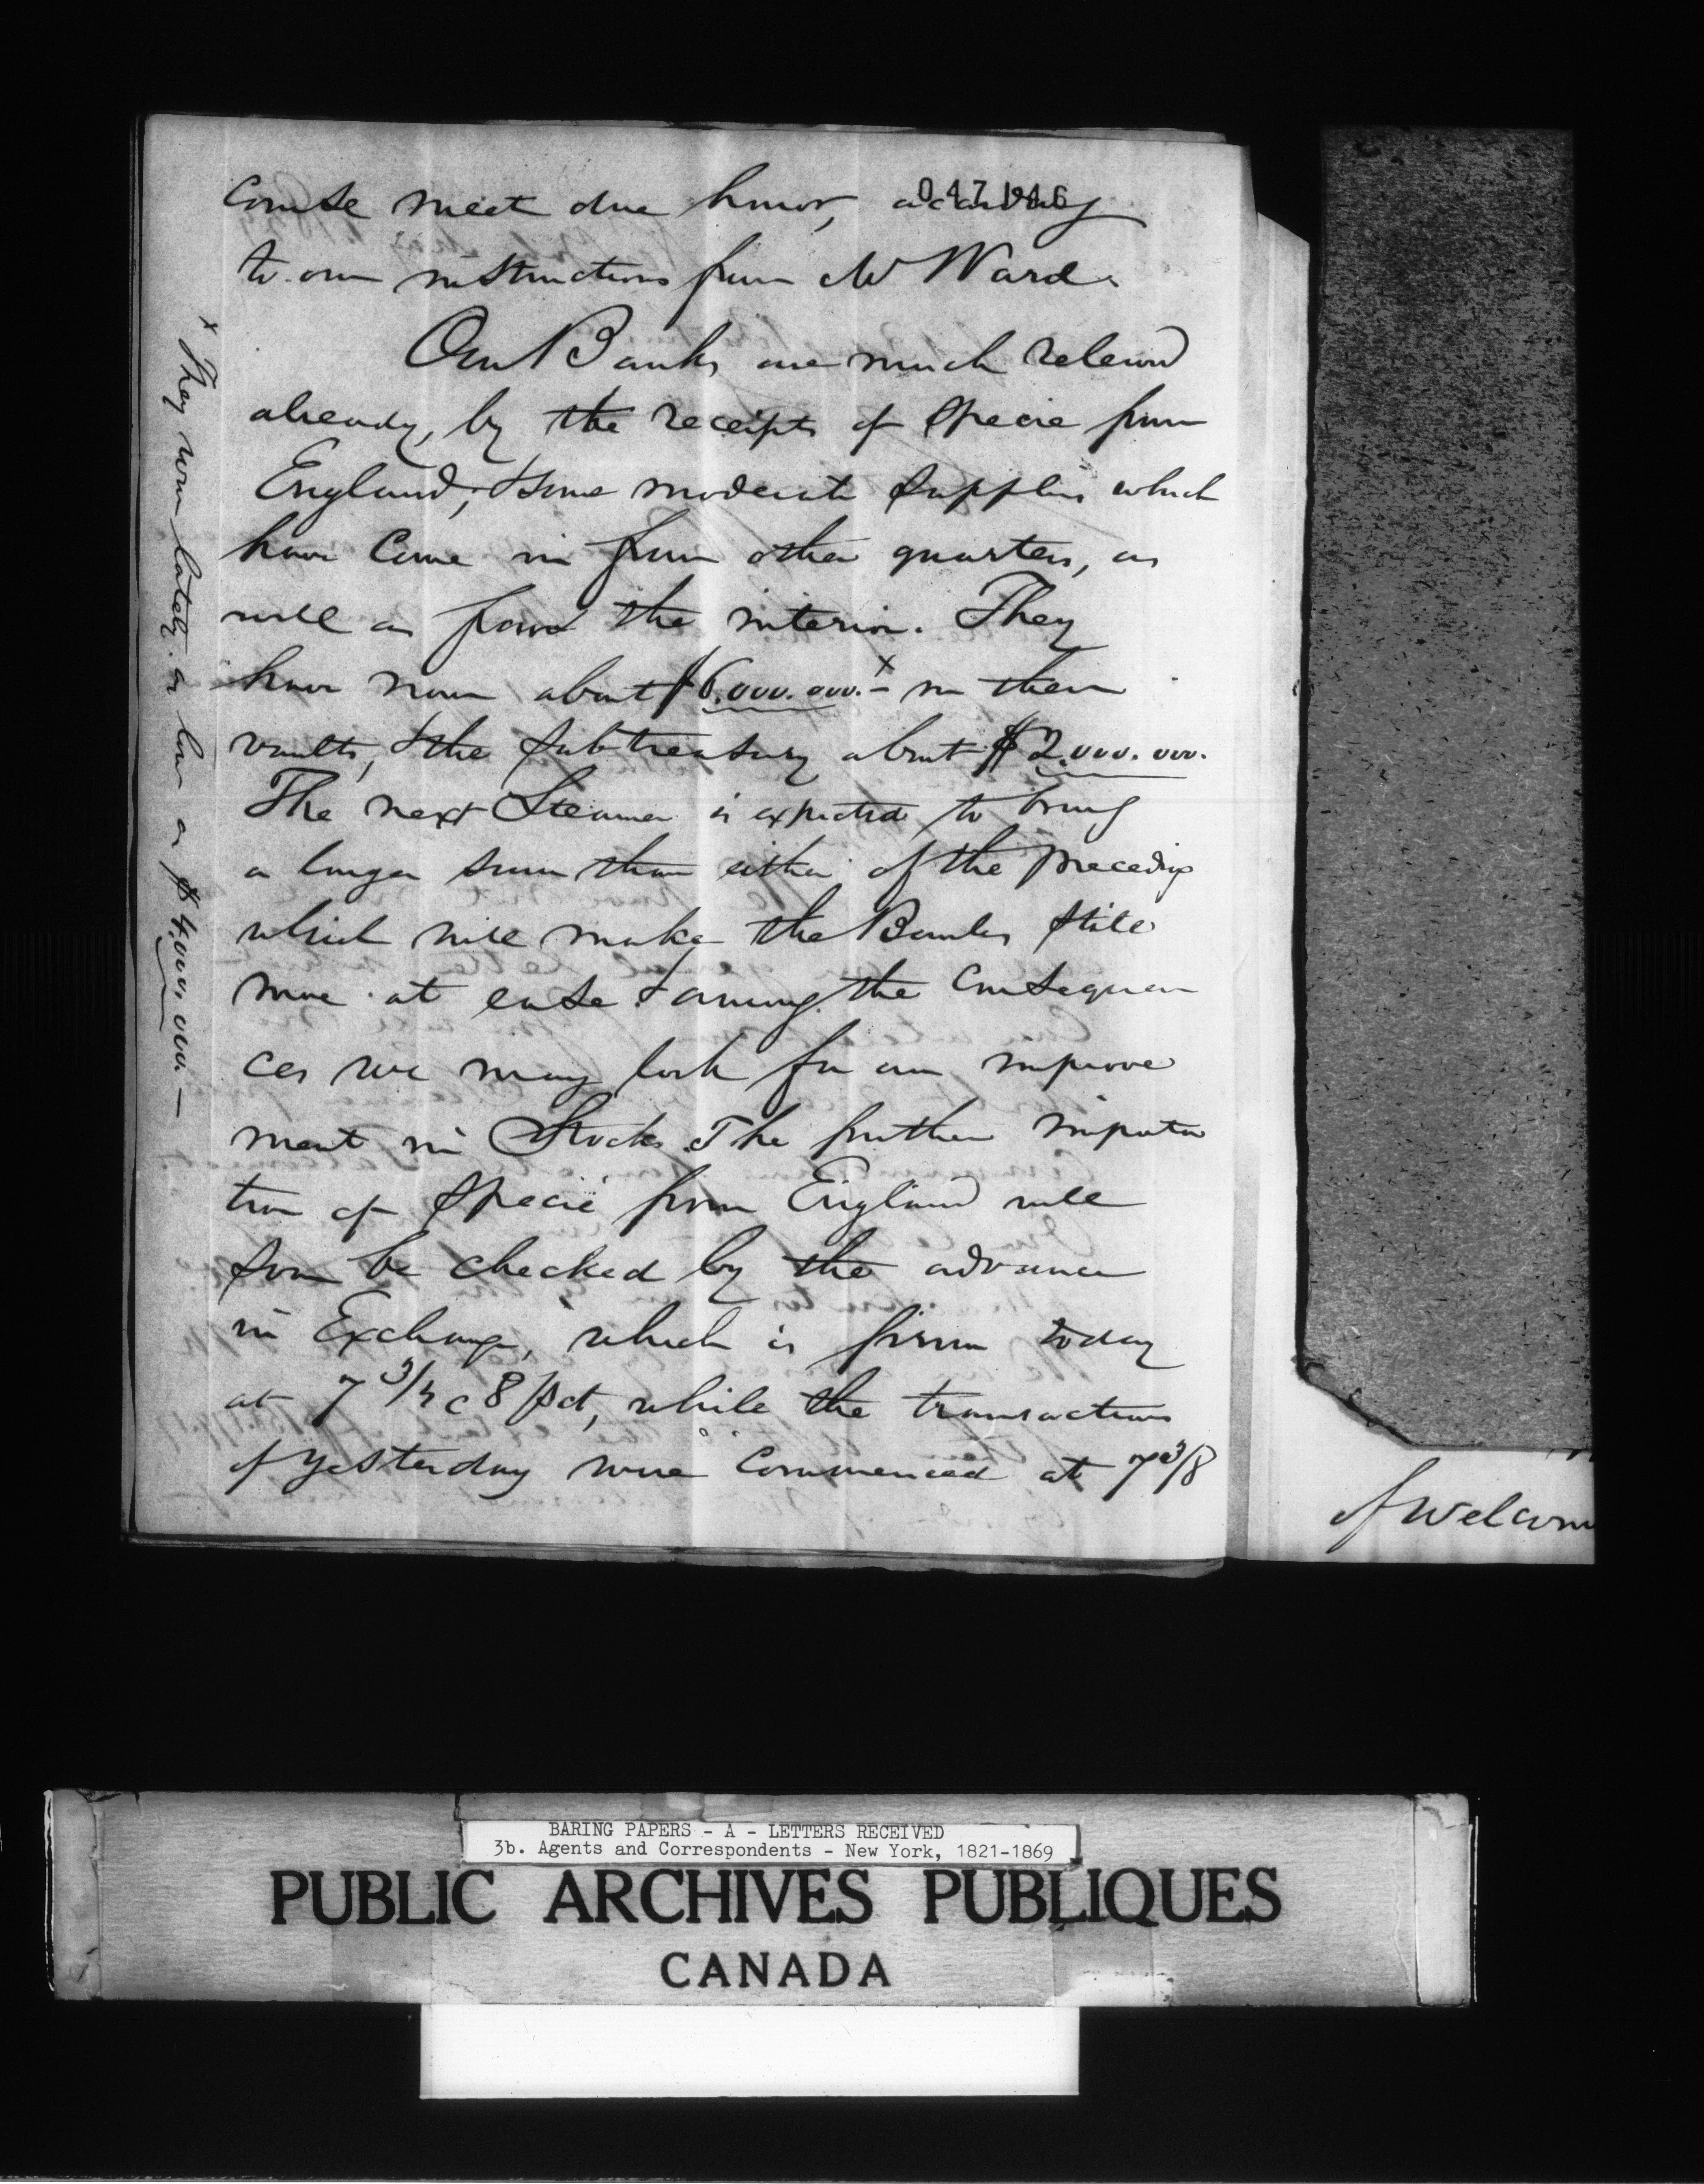 047946
course meet due honor, according
to our instructions from Mr Ward.
Our Banks are much relieved
already, by the receipts of Specie from
England, & some moderate supplies which
have come in from other quarters, as
well as from the interior. They
have now about $6.000.000.-x in their
vaults, & the Subtreasury about $2.000.000.
The next Steamer is expected to bring
a larger sum than either of the preceding
which will make the Banks still
more at ease & among the consequen
ces we may look for an improve
ment in Stocks. The further importa
tion of Specie from England will
soon be checked by the advance
in Exchange, which is firm today
at 7 3/4 @ 8 pct, while the transactions
of yesterday were commenced at 7 3/8
x They were lately as low as $4.000.000.-
of Welcom
BARING PAPERS - A - LETTERS RECEIVED
3b. Agents and Correspondents - New York, 1821-1869
PUBLIC ARCHIVES PUBLIQUES
CANADA